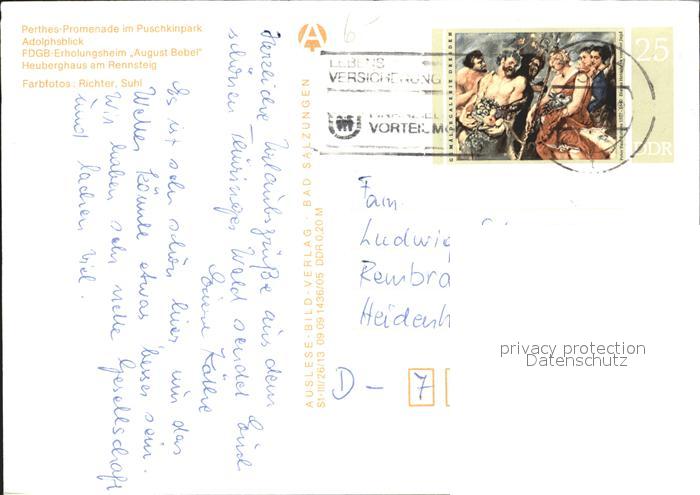 Perthes-Promenade im Puschkinpark
Adolphsblick
FDGB-Erholungsheim „August Bebel"
Heuberghaus am Rennsteig
Farbfotos: Richter, Suhl
Herzliche Urlaubsgrüße aus dem
schönen Thüringer Wald sendet Euch
Eure Käthe
Es ist sehr schön hier, nur das
Wetter könnte etwas besser sein.
Wir haben sehr nette Gesellschaft
und lachen viel.
AUSLESE-BILD-VERLAG · BAD SALZUNGEN
St-III/26/13 09 09 1436/05 DDR 0,20 M
LEBENS
VERSICHERUNG
FINANZIEL
VORTEIL
GEMÄLDEGALERIE DRESDEN
25
DDR
Fam.
Ludwig
Rembra
Heidenh
D - 7
privacy protection
Datenschutz